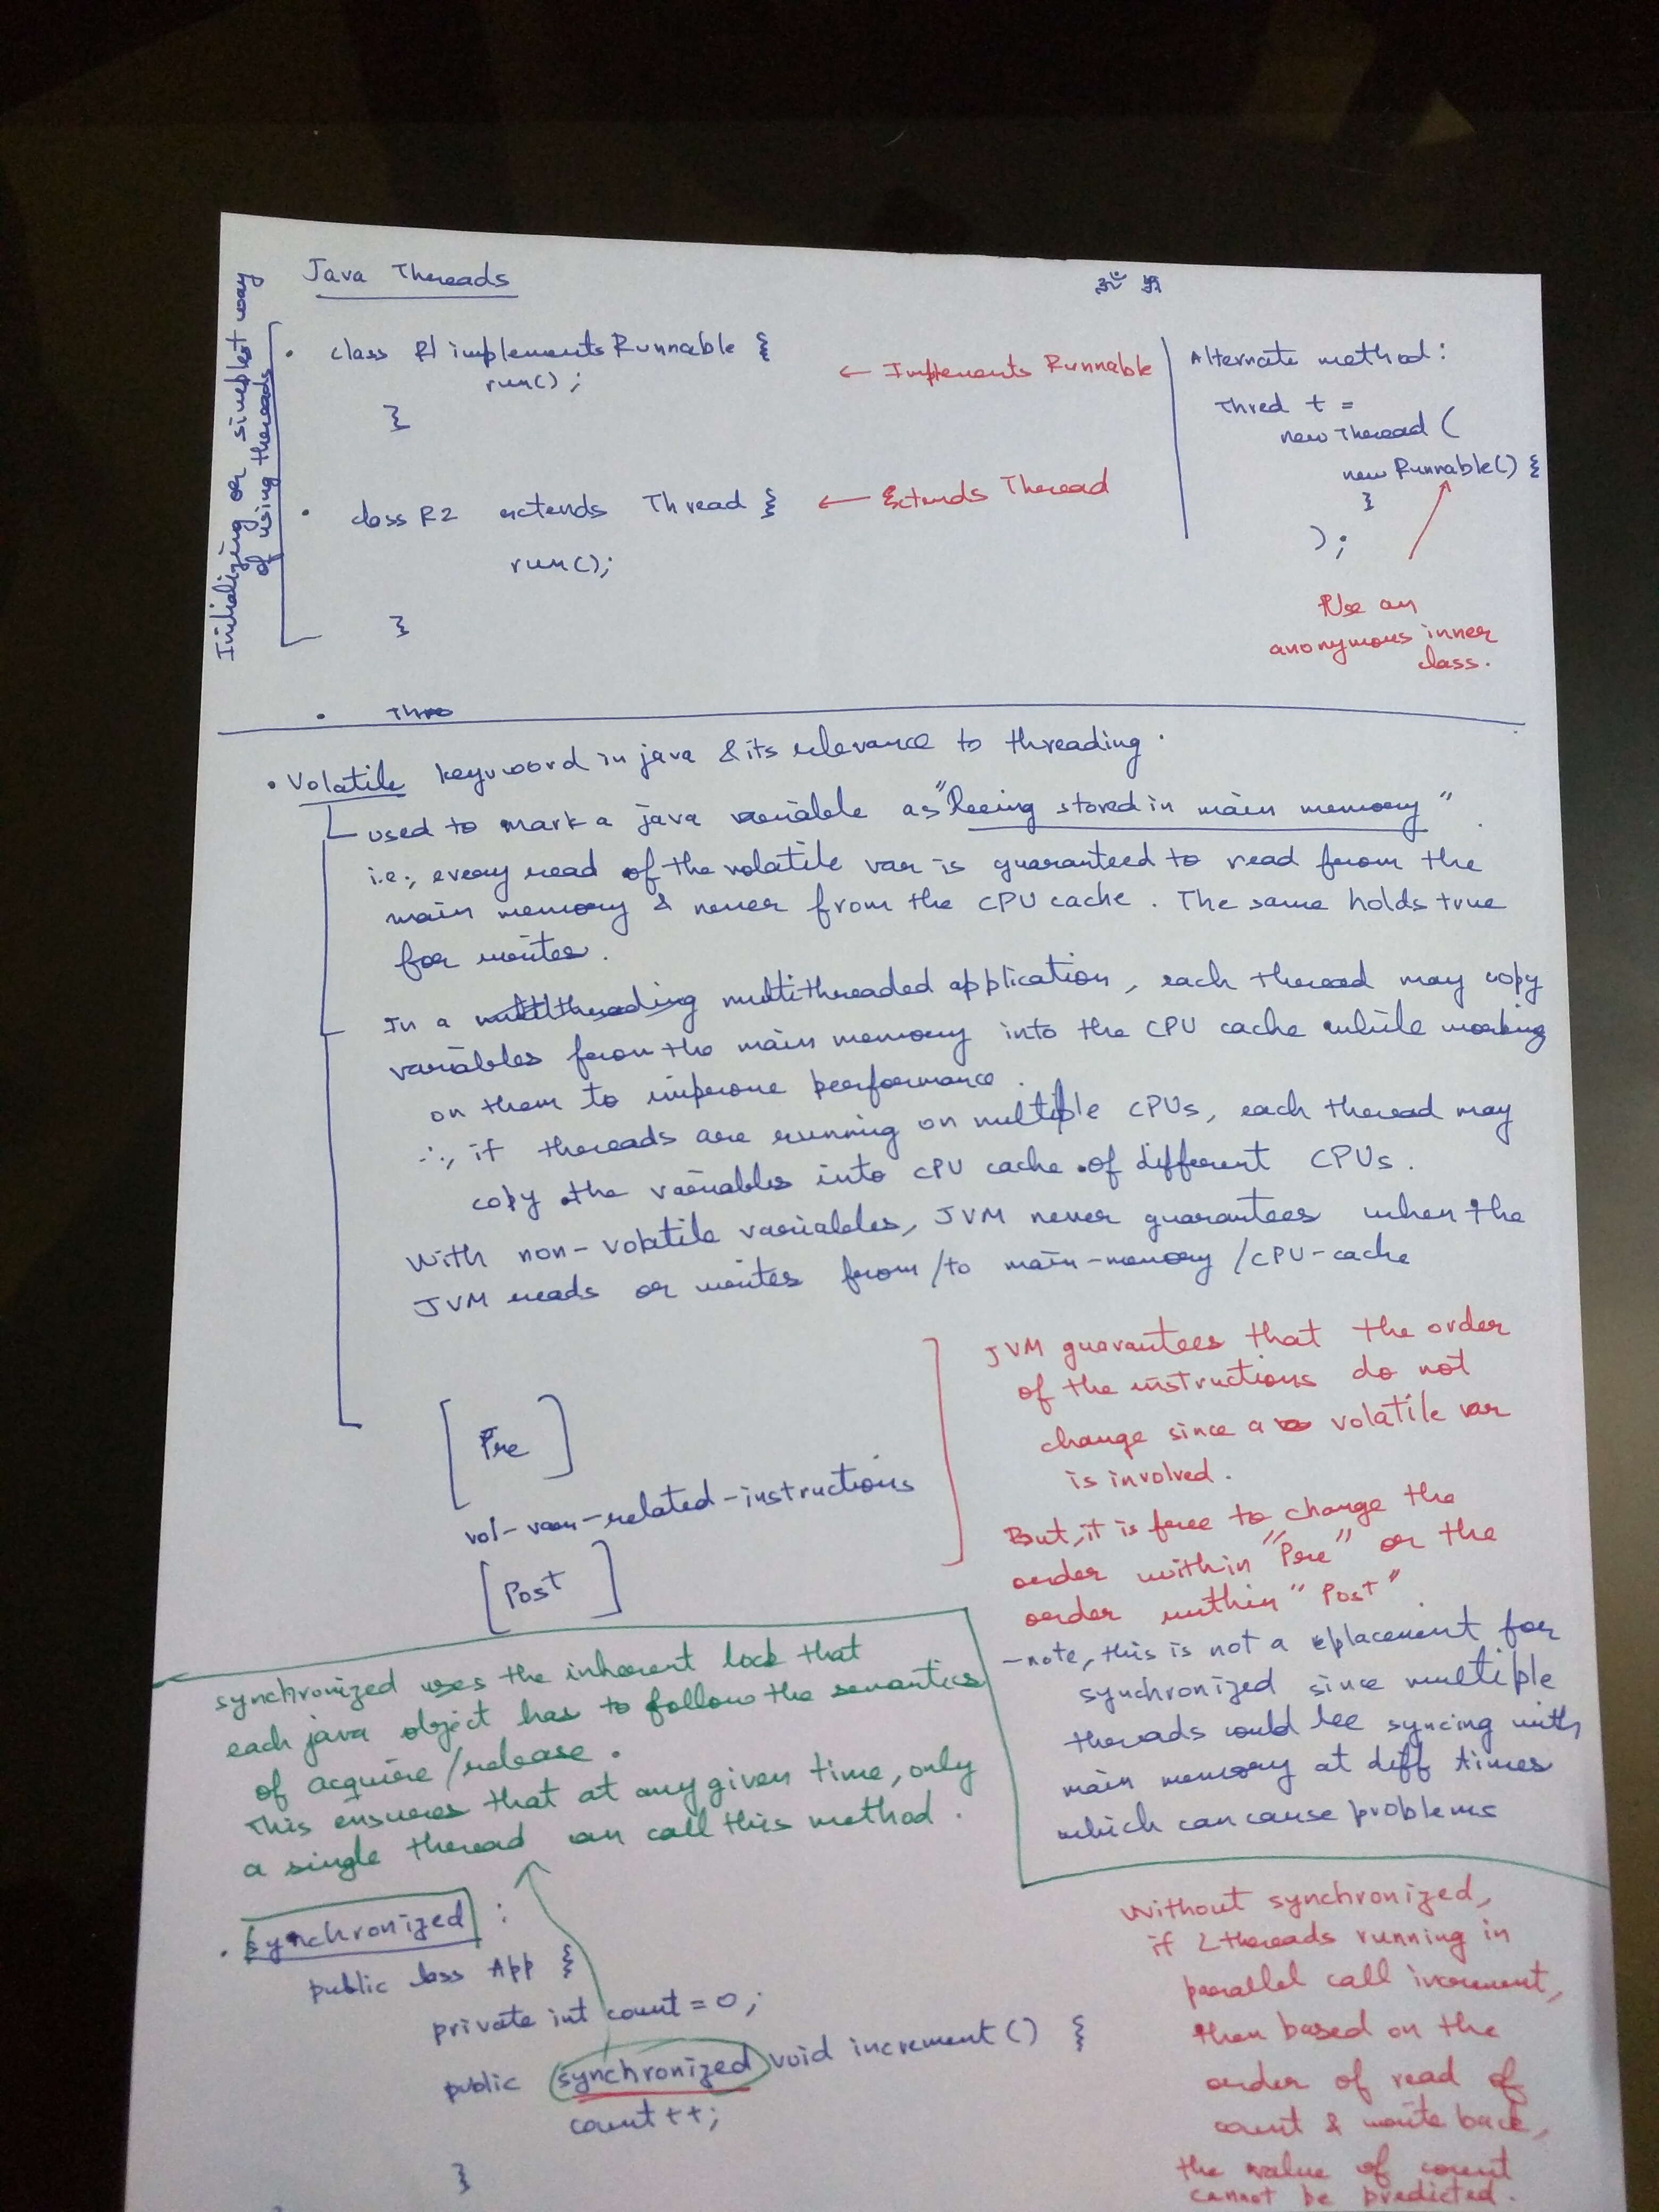 Java Threads
ॐ 卐
Initializing or simplest way
of using threads
• class R1 implements Runnable {
run();
}
← Implements Runnable
• class R2 extends Thread {
← Extends Thread
run();
}
• Thre
Alternate method:
Thred t =
new Thread (
new Runnable() {
}
);
Use an
anonymous inner
class.
• Volatile keyword in java & its relevance to threading.
used to mark a java variable as "being stored in main memory"
i.e., every read of the volatile var is guaranteed to read from the
main memory & never from the CPU cache. The same holds true
for writes.
In a multithreading multithreaded application, each thread may copy
variables from the main memory into the CPU cache while working
on them to improve performance.
∴, if threads are running on multiple CPUs, each thread may
copy the variables into CPU cache of different CPUs.
With non-volatile variables, JVM never guarantees when the
JVM reads or writes from/to main-memory/CPU-cache
[Pre]
vol-var-related-instructions
[Post]
JVM guarantees that the order
of the instructions do not
change since a volatile var
is involved.
But, it is free to change the
order within "Pre" or the
order within "Post"
- note, this is not a replacement for
synchronized since multiple
threads could be syncing with
main memory at diff times
which can cause problems
synchronized uses the inherent lock that
each java object has to follow the semantics
of acquire/release.
This ensures that at any given time, only
a single thread can call this method.
• synchronized :
public class App {
private int count = 0;
public synchronized void increment() {
count++;
}
Without synchronized,
if 2 threads running in
parallel call increment,
then based on the
order of read of
count & write back,
the value of count
cannot be predicted.